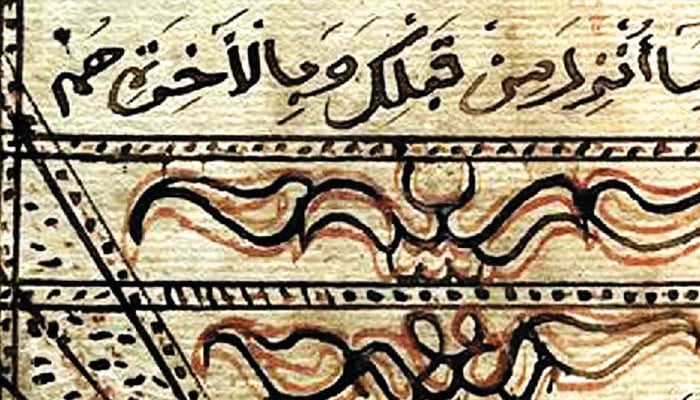 مَا أُنْزِلَ مِنْ قَبْلِكَ وَبِالْأَخِرَةِ هُمْ